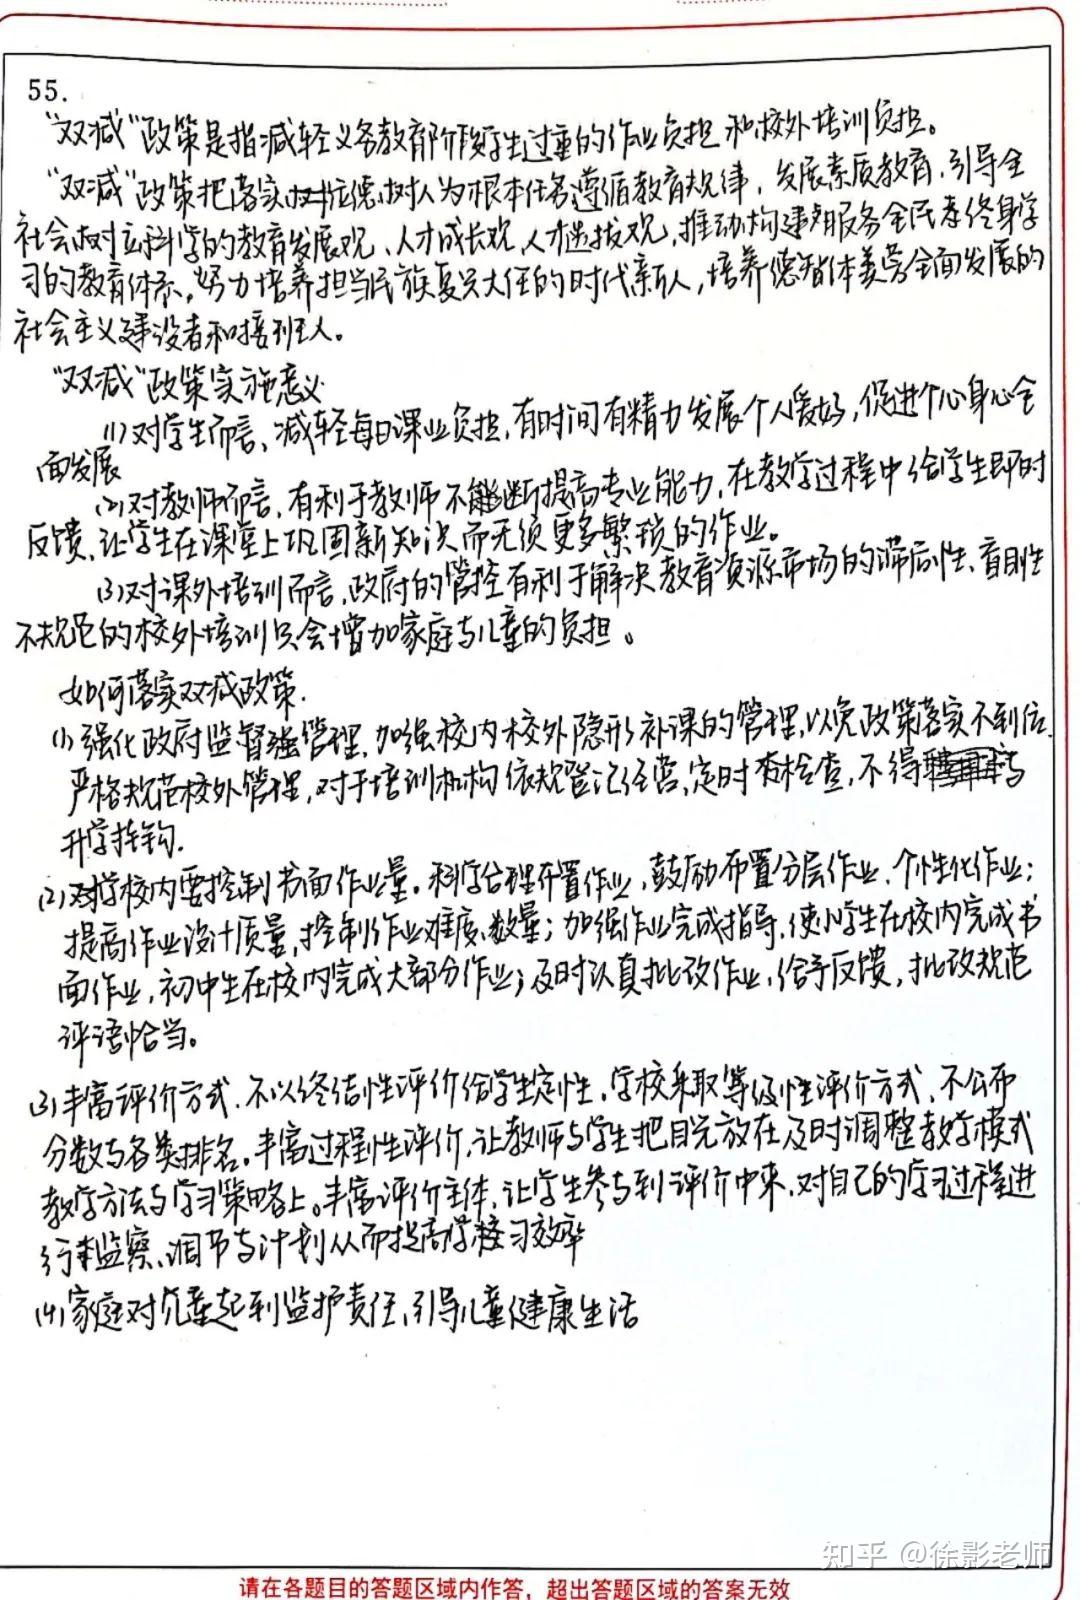 55.
“双减”政策是指减轻义务教育阶段学生过重的作业负担和校外培训负担。
“双减”政策把落实立德树人为根本任务遵循教育规律，发展素质教育，引导全
社会树立科学的教育发展观、人才成长观、人才选拔观，推动构建服务全民终身学
习的教育体系，努力培养担当民族复兴大任的时代新人，培养德智体美劳全面发展的
社会主义建设者和接班人。
“双减”政策实施意义
(1)对学生而言，减轻每日课业负担，有时间有精力发展个人爱好，促进个心身心全
面发展
(2)对教师而言，有利于教师不能断提高专业能力，在教学过程中给学生即时
反馈，让学生在课堂上巩固新知识而无须更多繁琐的作业。
(3)对课外培训而言，政府的管控有利于解决教育资源市场的滞后性、盲目性
不规范的校外培训只会增加家庭与儿童的负担。
如何落实双减政策.
(1)强化政府监督强管理，加强校内校外隐形补课的管理，以免政策落实不到位.
严格规范校外管理，对于培训机构依规登记经营，定时查检查，不得与
升学挂钩.
(2)对学校内要控制书面作业量。科学合理布置作业，鼓励布置分层作业、个性化作业；
提高作业设计质量，控制作业难度、数量；加强作业完成指导，使小学生在校内完成书
面作业，初中生在校内完成大部分作业；及时认真批改作业，给予反馈，批改规范
评语恰当。
(3)丰富评价方式，不以终结性评价给学生定性，学校采取等级性评价方式，不公布
分数与各类排名。丰富过程性评价，让教师与学生把目光放在及时调整教学模式
教学方法与学习策略上。丰富评价主体，让学生参与到评价中来，对自己的学习过程进
行监察、调节与计划从而提高学习效率
(4)家庭对儿童起到监护责任，引导儿童健康生活
知乎 @徐影老师
请在各题目的答题区域内作答，超出答题区域的答案无效